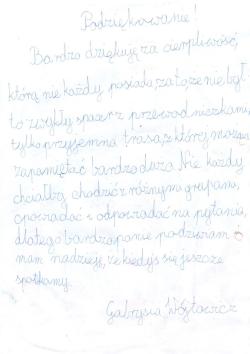 Podziękowanie!
Bardzo dziękuję za cierpliwość,
którą nie każdy posiada, za to, że nie był
to zwykły spacer z przewodniczkami,
tylko przyjemna trasa, z której można
zapamiętać bardzo dużo. Nie każdy
chciałby chodzić z różnymi grupami,
opowiadać i odpowiadać na pytania,
dlatego bardzo panie podziwiam i
mam nadzieję, że kiedyś się jeszcze
spotkamy.
Gabrysia Wójtowicz